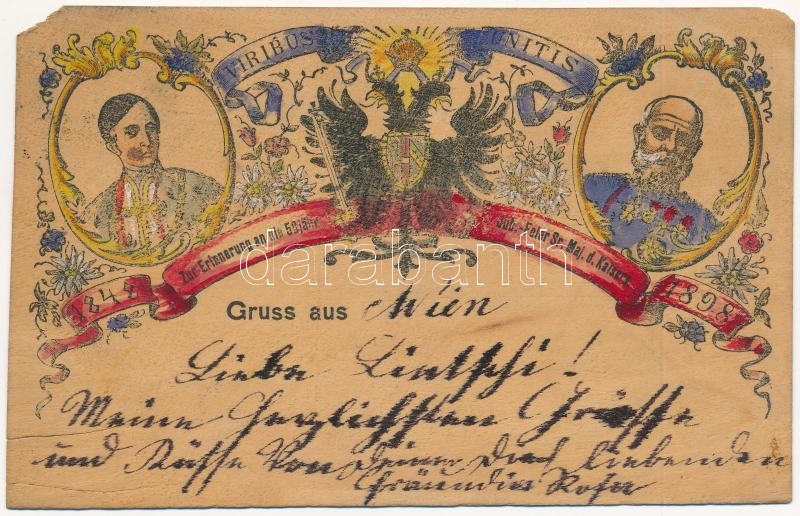 VIRIBUS UNITIS
Zur Erinnerung an das 50jähr. Jub. Feier Sr. Maj. d. Kaisers
1848 1898
darabanth
Gruss aus Wien
Liebe Lintschi!
Meine herzlichsten Grüsse
und Küsse von Deiner Dich liebenden
Freundin Rosa